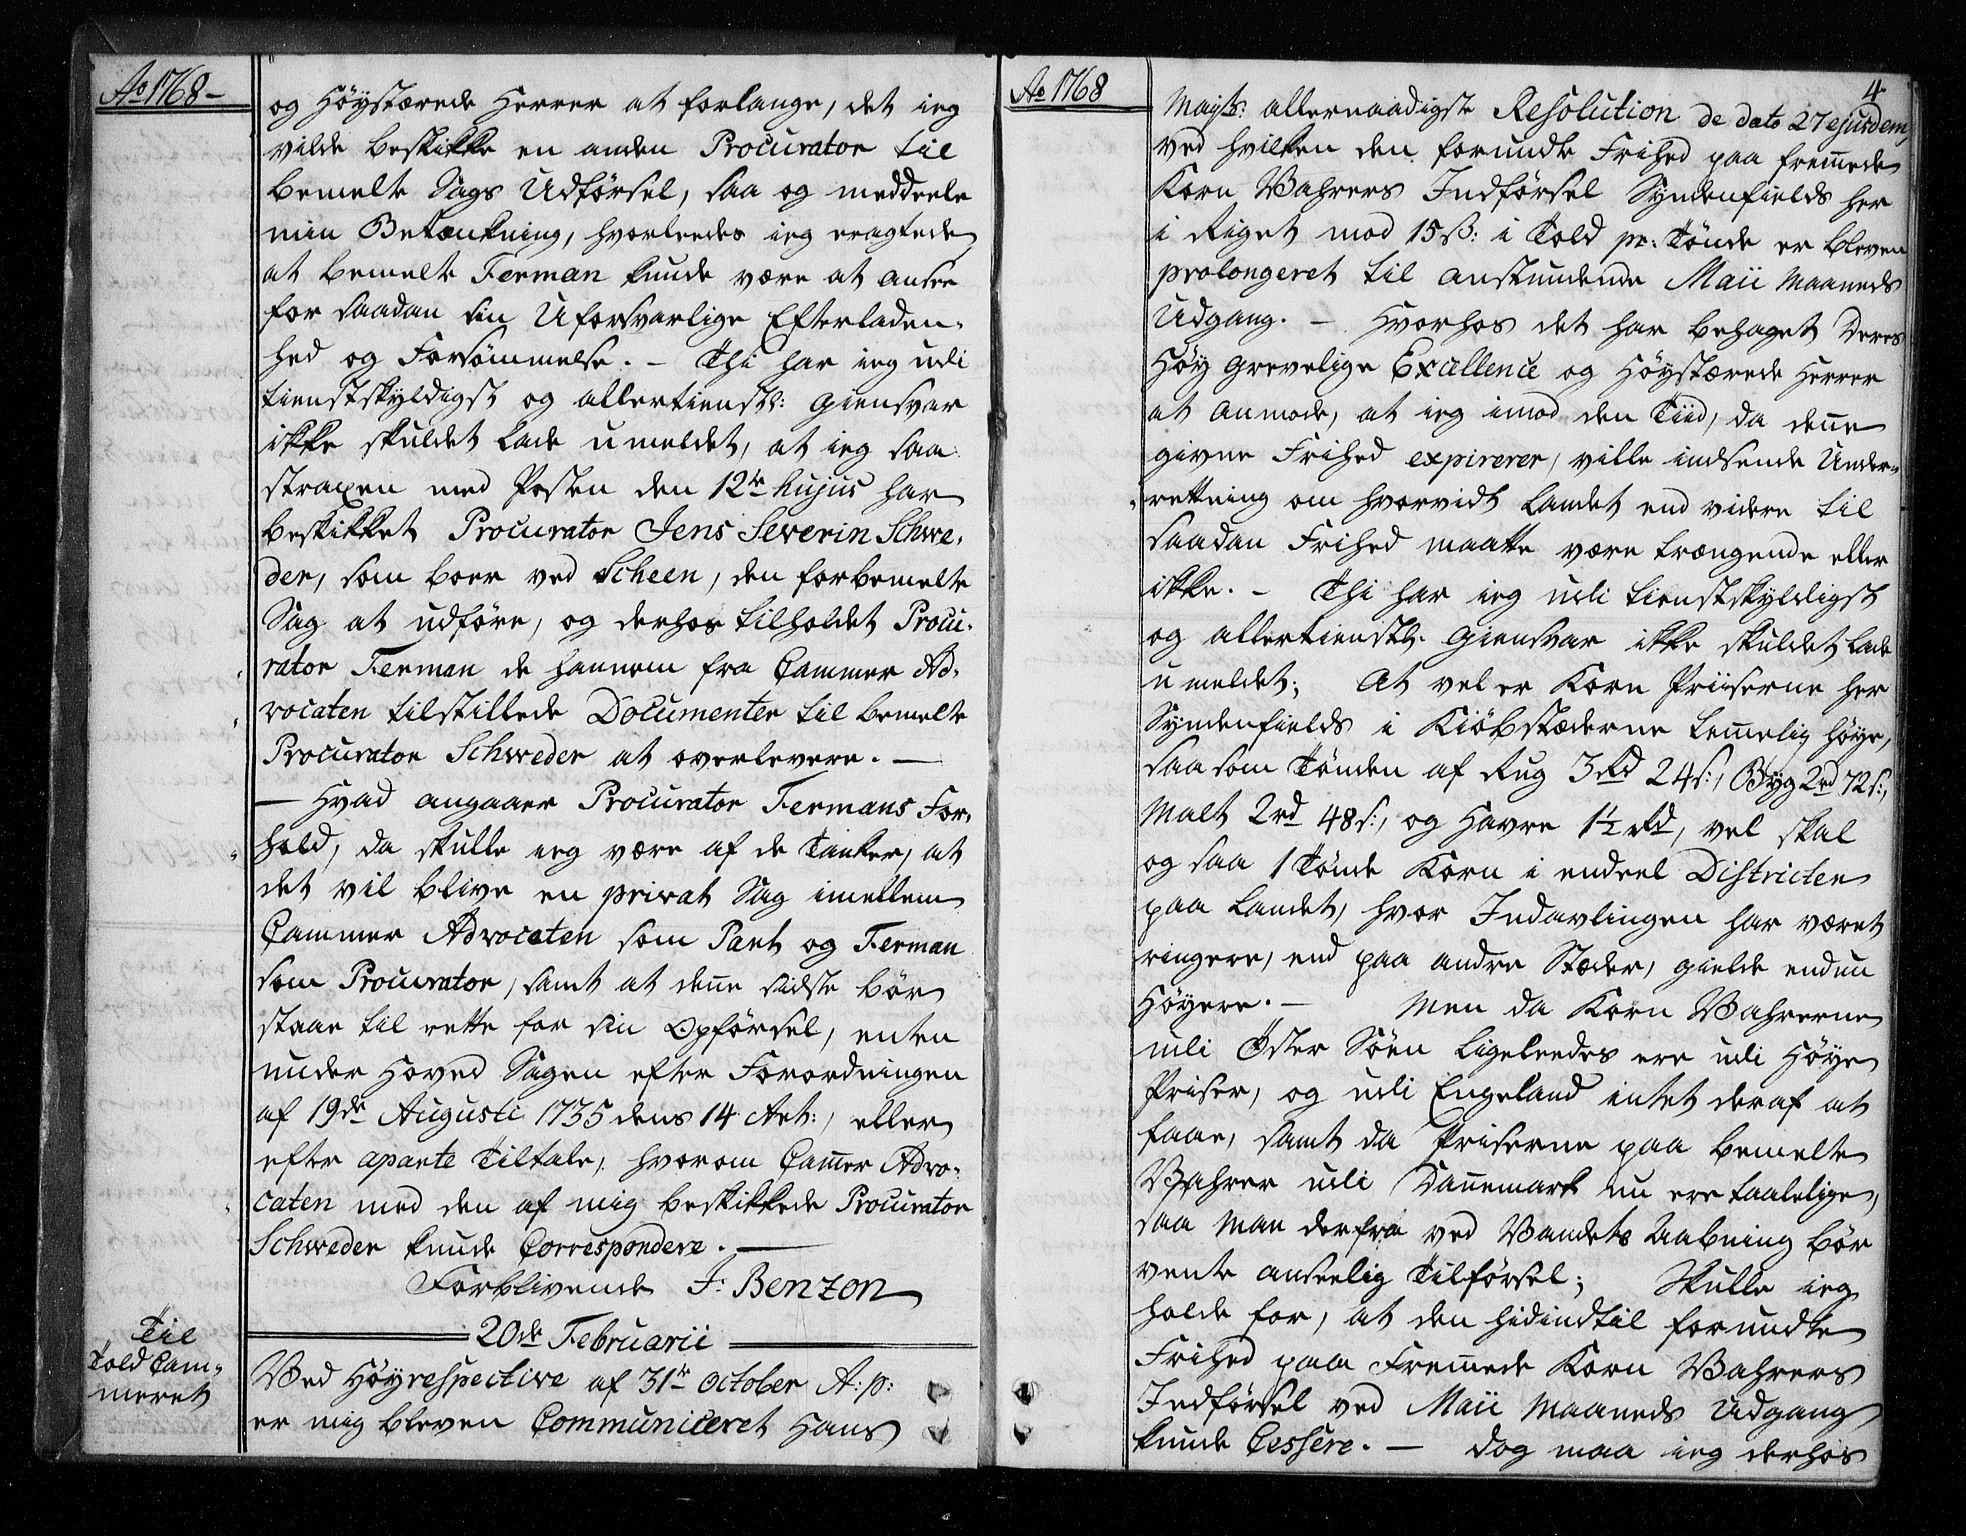 Ao 1768 –
og Høystærede Herrer at forlange, det ieg
vilde beskikke en anden Procurator til
bemelte Sags Udførsel, saa og meddeele
min Betænkning, hvorleedes ieg eragtede
at bemelte Ferman kunde være at ansee
for saadan sin Uforsvarlige Efterladen-
hed og Forsømmelse. – Thi har ieg udi
tienstskyldigst og allertienstl: Giensvar
ikke skuldet lade umeldet, at ieg saa
straxen med Posten den 12te hujus har
beskikket Procurator Jens Severin Schwe-
der, som boer ved Scheen, den forbemelte
Sag at udføre, og derhos tilholdet Procu-
rator Ferman de hannem fra Cammer Ad-
vocaten tilstillede Documenter til bemelte
Procurator Schweder at overlevere. –
– Hvad angaaer Procurator Fermans For-
hold, da skulle ieg være af de Tanker, at
det vil blive en privat Sag imellem
Cammer Advocaten som Part og Ferman
som Procurator, samt at deñe sidste bør
staae til rette for sin Opførsel, enten
under Hoved Sagen efter Forordningen
af 19de Augusti 1735 dens 14 Art:, eller
efter aparte Tiltale, hvorom Cam̃er Advo-
caten med den af mig beskikkede Procurator
Schweder kunde Correspondere. –
Forblivende J: Benzon
20de Februarii
Til
Told Cam-
meret
Ved Høyrespective af 31te October A: p:
er mig bleven Communiceret Hans
Ao 1768
4
Mayts: allernaadigste Resolution de dato 27 ejusdem,
ved hvilken den forundte Frihed paa frem̃ede
Korn Vahrers Indførsel Syndenfields her
i Riget mod 15 ß: i Told pr: Tønde er bleven
prolongeret til anstundende Maii Maaneds
Udgang. – Hvorhos det har behaget Deres
Høy Grevelige Excellence og Høystærede Herrer
at anmode, at ieg imod den Tiid, da deñe
givne Frihed expirerer, ville indsende Under-
rettning om hvorvidt Landet end videre til
saadan Frihed maatte være trængende eller
ikke. – Thi har ieg udi tienstskyldigst
og allertienstl. Giensvar ikke skuldet lade
umeldet; At vel er Korn Priiserne her
Syndenfields i Kiøbstæderne tem̃elig høye,
saasom Tønden af Rug 3 Rd 24 s:, Byg 2 rd 72 s:,
Malt 2 rd 48 s:, og Havre 1½ Rd, vel skal
og saa 1 Tønde Korn i endeel Districter
paa Landet, hvor Indavlingen har været
ringere, end paa andre Stæder, gielde endnu
høyere. – Men da Korn Vahrerne
udi Øster Søen ligeleedes ere udi høye
Priser, og udi Engeland intet deraf at
faae, samt da Priserne paa bemelte
Vahrer udi Dañemark nu ere taalelige,
saa man derfra ved Vandets Aabning bør
vente anseelig Tilførsel; Skulle ieg
holde for, at den hidindtil forundte
Frihed paa Frem̃ede Korn Vahrers
Indførsel ved Maii Maaneds Udgang
kunde Cessere. – Dog maa ieg derhos